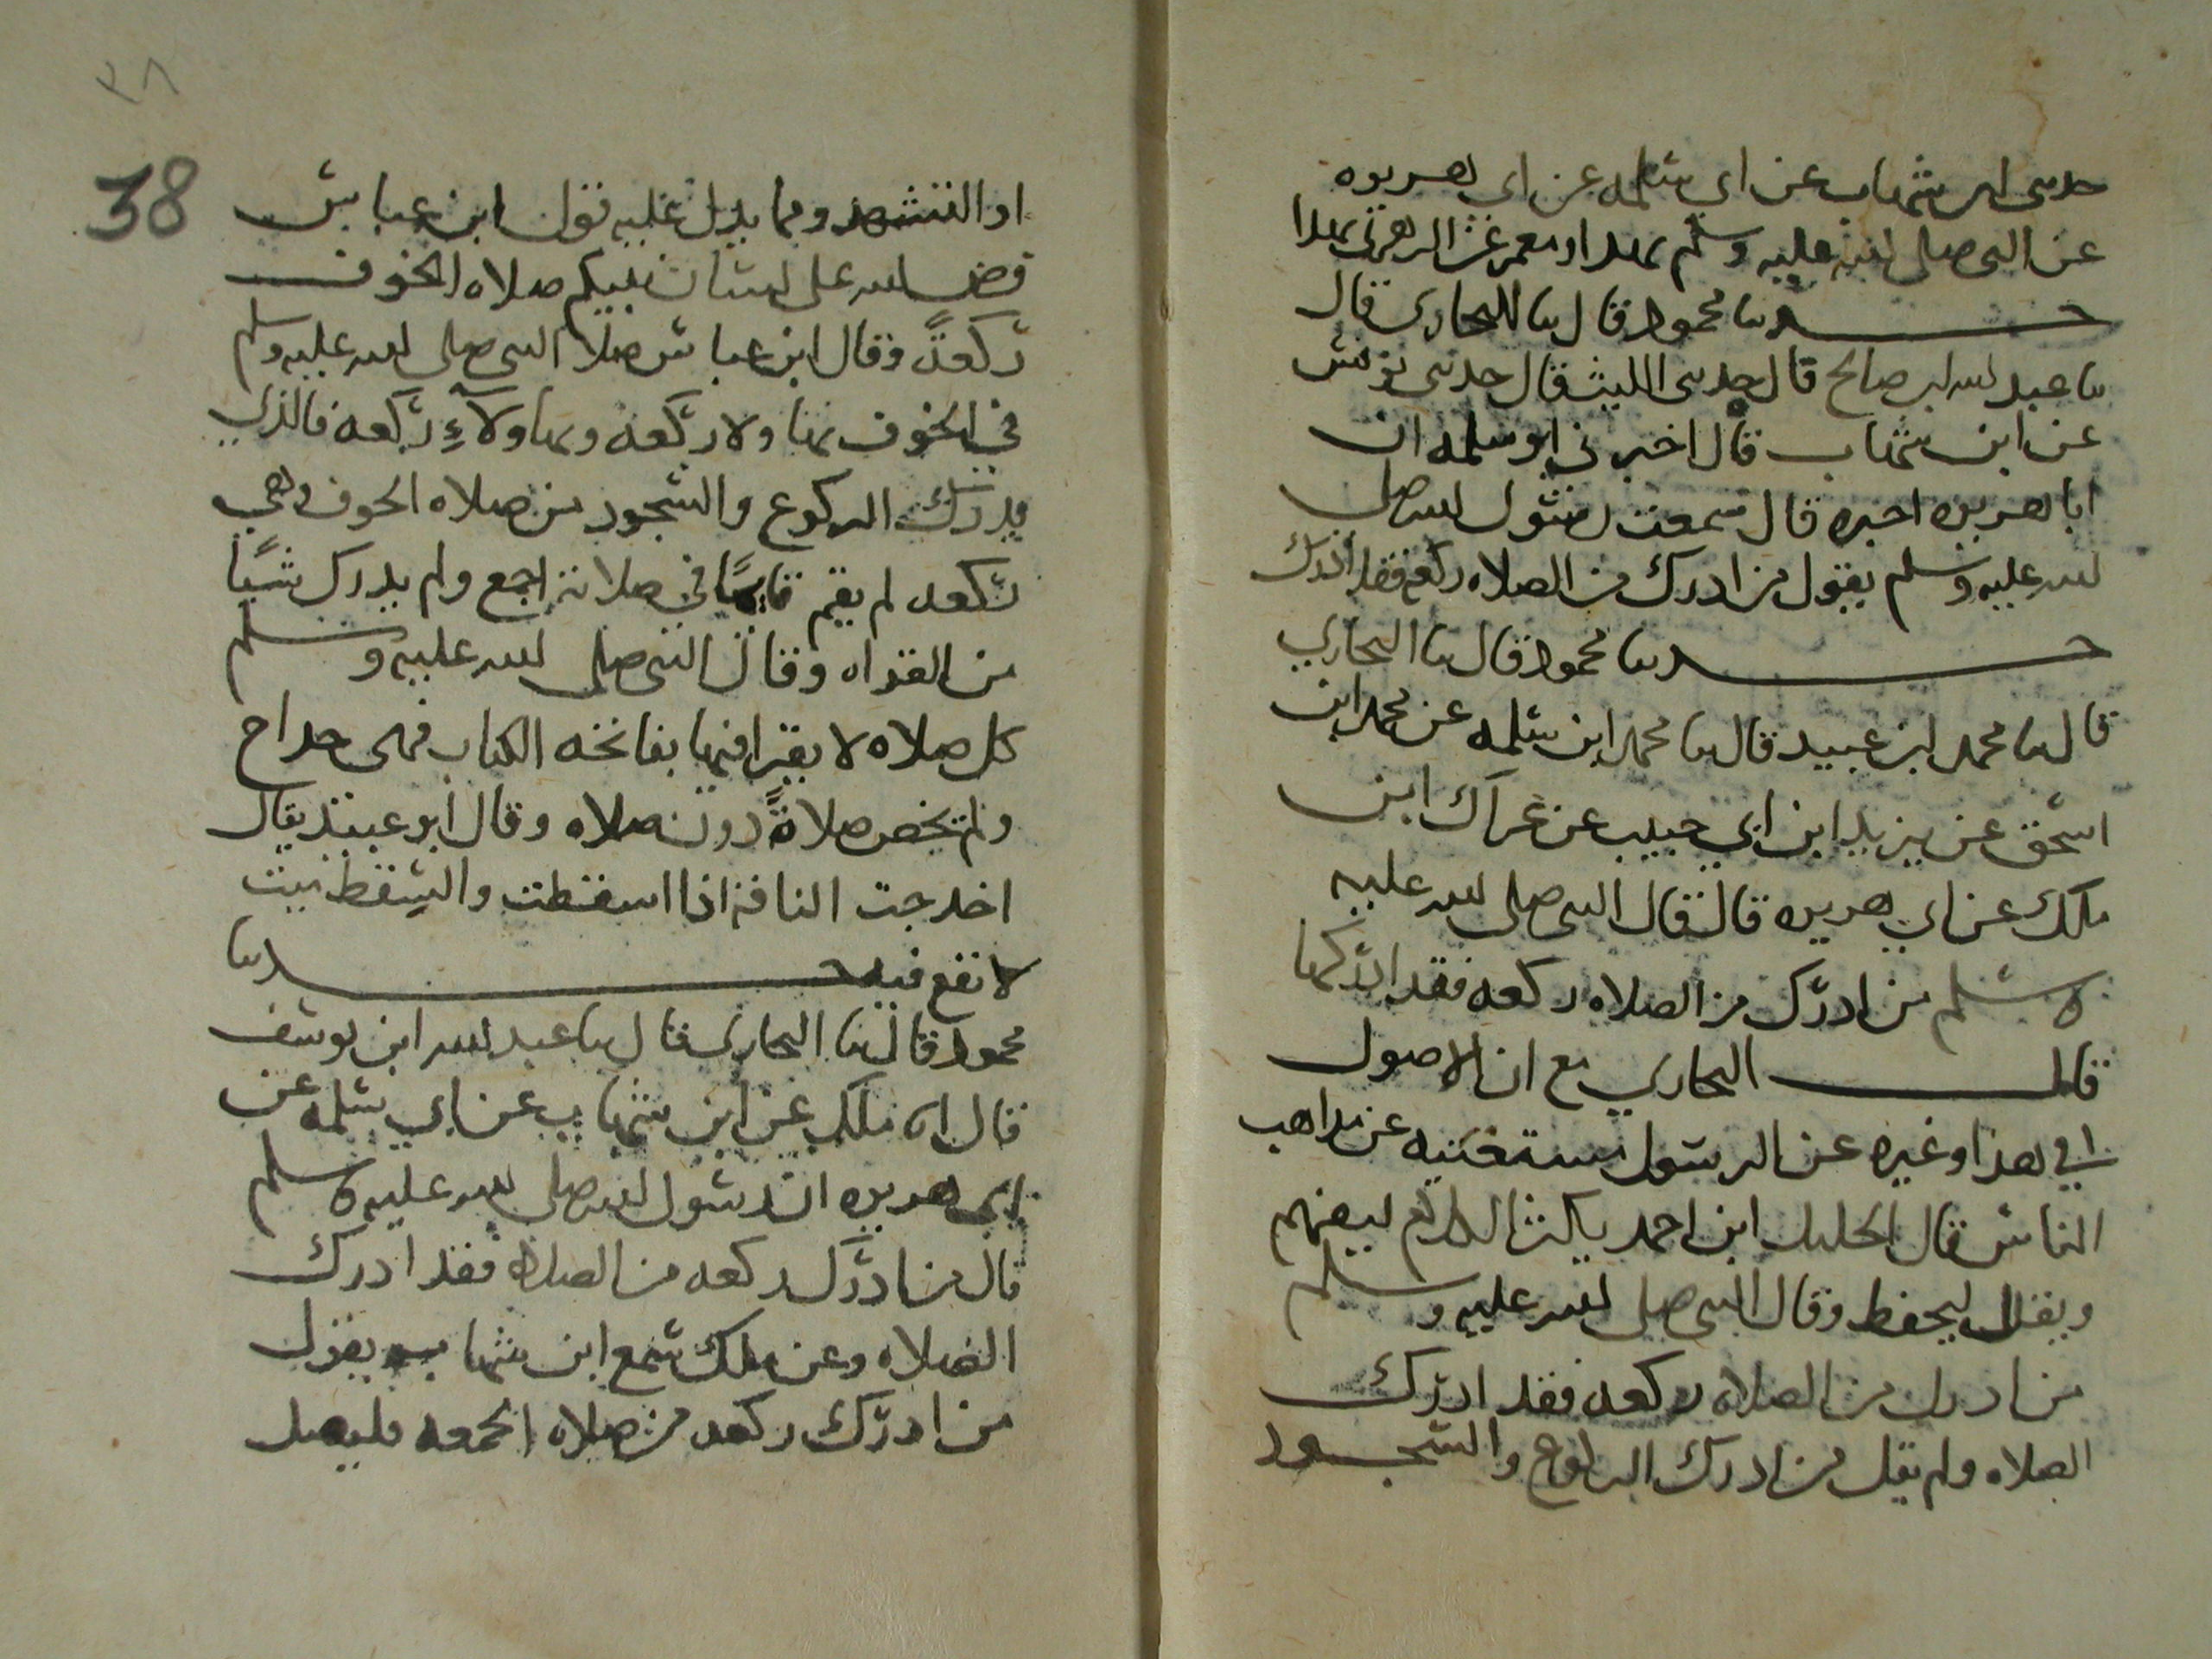 حدثني ابن شهاب عن ابي سلمه عن ابي هريره
عن النبي صلى الله عليه وسلم بهذا ومعمر عن الزهري بهذا
حدثنا محمود قال ثنا البخاري قال
ثنا عبد الله ابن صالح قال حدثني الليث قال حدثني يونس
عن ابن شهاب قال اخبرني ابو سلمه ان
ابا هريره اخبره قال سمعت رسول الله صلى
الله عليه وسلم يقول من ادرك من الصلاه ركعه فقد ادرك
حدثنا محمود قال ثنا البخاري
قال ثنا محمد ابن عبيد قال ثنا محمد ابن سلمه عن محمد ابن
اسحق عن يزيد ابن ابي حبيب عن عراك ابن
ملك عن ابي هريره قال قال النبي صلى الله عليه
وسلم من ادرك من الصلاه ركعه فقد ادركها
قال البخاري مع ان الاصول
في هذا وغيره عن الرسول مستغنيه عن مذاهب
الناس قال الخليل ابن احمد يكثر الكلام ليفهم
ويقلل ليحفظ وقال النبي صلى الله عليه وسلم
من ادرك من الصلاه ركعه فقد ادرك
الصلاه ولم يقل من ادرك الركوع والسجود
٣٨
38
او التشهد ومما يدل عليه قول ابن عباس
فرض الله على لسان نبيكم صلاه الخوف
ركعةً وقال ابن عباس صلا النبي صلى الله عليه وسلم
في الخوف بهاولا ركعه وبهاولآءِ ركعه فالذي
يدرك الركوع والسجود من صلاه الخوف وهي
ركعه لم يقم قايمًا في صلاته اجمع ولم يدرك شيًا
من القراه وقال النبي صلى الله عليه وسلم
كل صلاه لا يقرا فيها بفاتحه الكتاب فهي خداج
ولم يخص صلاةً دون صلاه وقال ابو عبيد يقال
اخدجت الناقه اذا اسقطت والسقط ميت
لا نفع فيه حدثنا
محمود قال ثنا البخاري قال ثنا عبد الله ابن يوسف
قال انا ملك عن ابن شهاب عن ابي سلمه عن
ابي هريره ان رسول الله صلى الله عليه وسلم
قال من ادرك ركعه من الصلاه فقد ادرك
الصلاه وعن ملك سمع ابن شهاب يقول
من ادرك ركعه من صلاه الجمعه فليصل